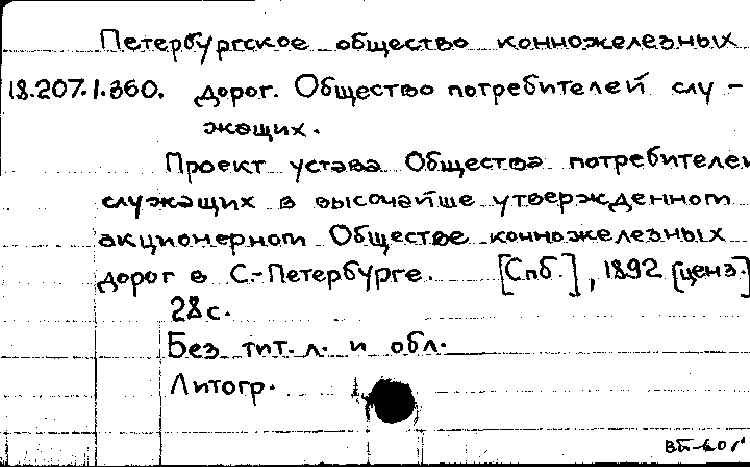 Петербургское общество конножелезных
18.207.1.360. дорог. Общество потребителей слу-
жащих.
Проект устава Общества потребителей
служащих в высочайше утвержденном
акционерном Обществе конножелезных
дорог в С.-Петербурге. [Спб.], 1892 [ценз.]
28 с.
Без тит. л. и обл.
Литогр.